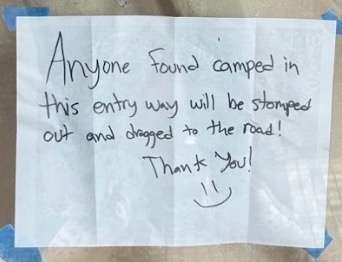 Anyone found camped in
this entry way will be stomped
out and dragged to the road!
Thank You!